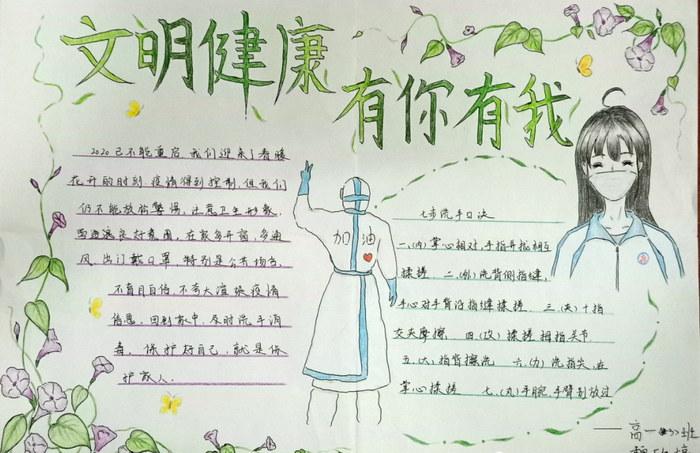 文明健康
有你有我
2020已不能重启,我们迎来了春暖
花开的时刻,疫情得到控制,但我们
仍不能放松警惕,注意卫生形象,
养成良好习惯,在家多开窗,多通
风,出门戴口罩,特别是公共场合,
不盲目自信,不夸大渲染疫情
信息,回到家中,及时洗手消
毒,保护好自己,就是保
护家人.
加油
七步洗手口决
一、(内)掌心相对,手指并拢相互
揉搓 二、(外)洗背侧指缝,
手心对手背沿指缝揉搓 三、(夹)十指
交夹摩擦. 四、(攻)揉搓拇指关节
五、(大)指背擦洗 六、(力)洗指尖,在
掌心揉搓 七、(丸)手腕,手臂别放过
——高一 班